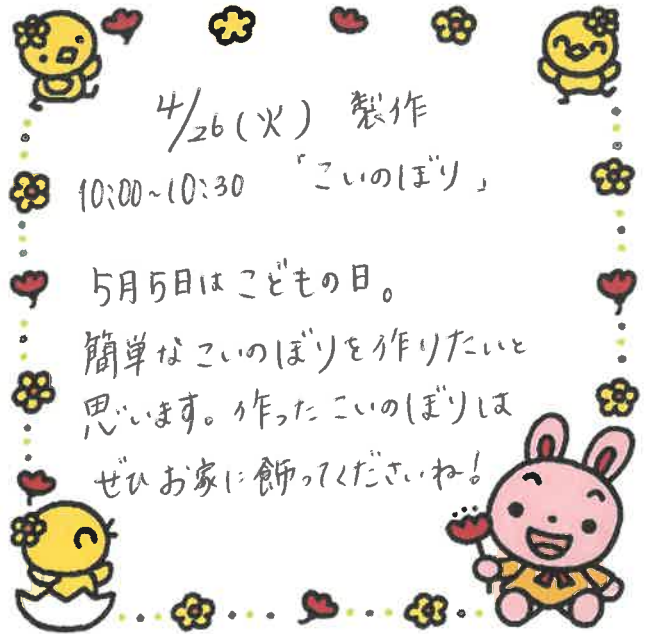 4/26(火) 製作
10:00~10:30 「こいのぼり」
5月5日はこどもの日。
簡単なこいのぼりを作りたいと
思います。作ったこいのぼりは
ぜひお家に飾ってくださいね!